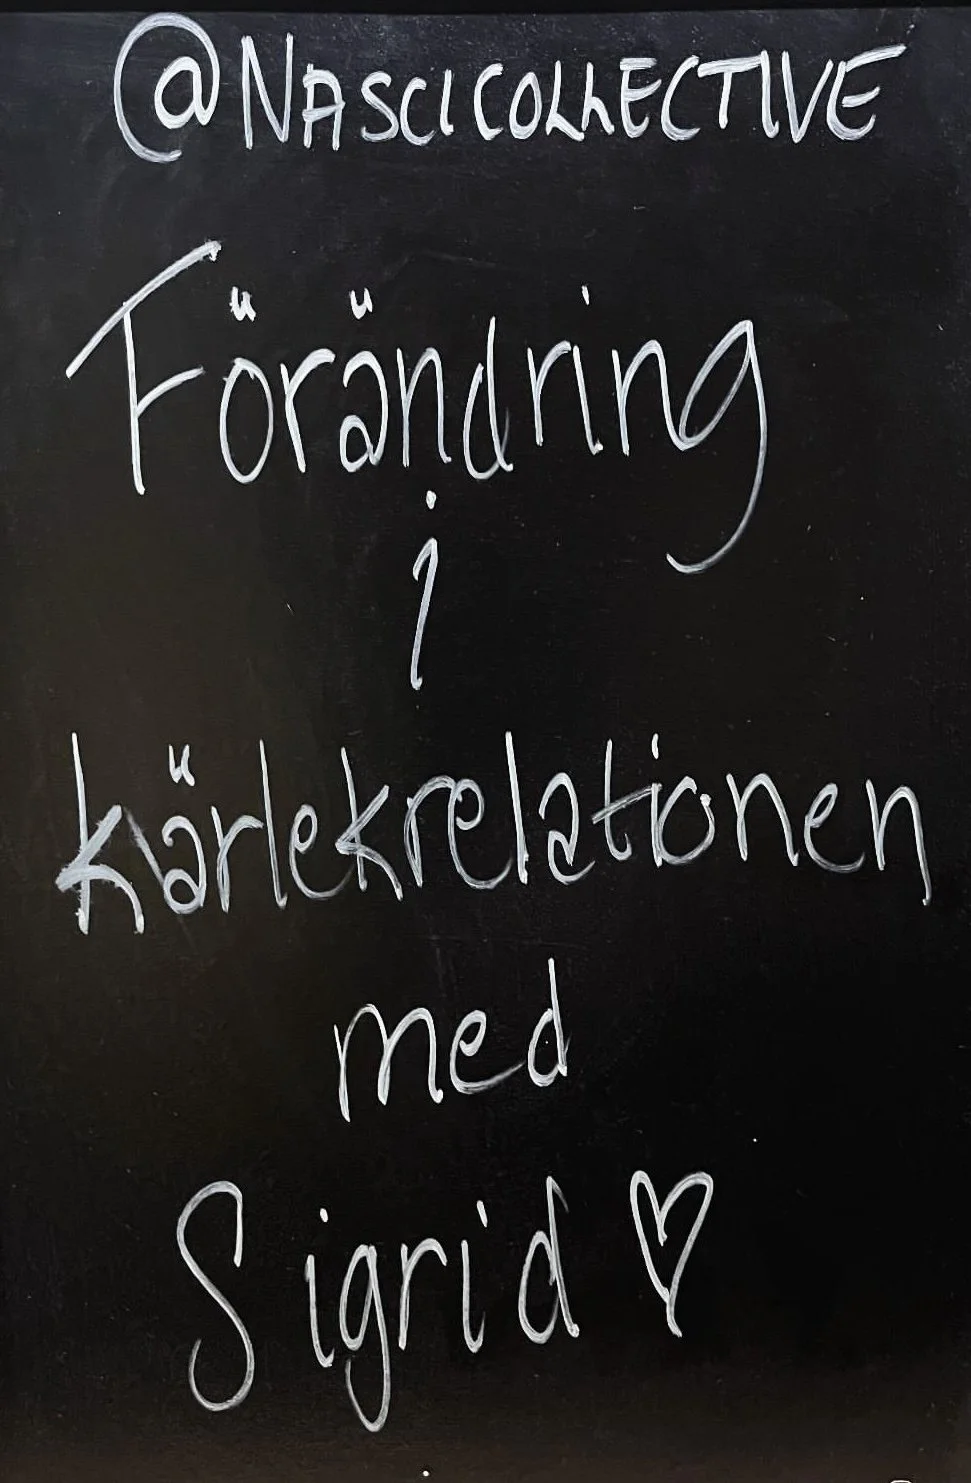 @NASCICOLLECTIVE
Förändring
i
kärlekrelationen
med
Sigrid ♡